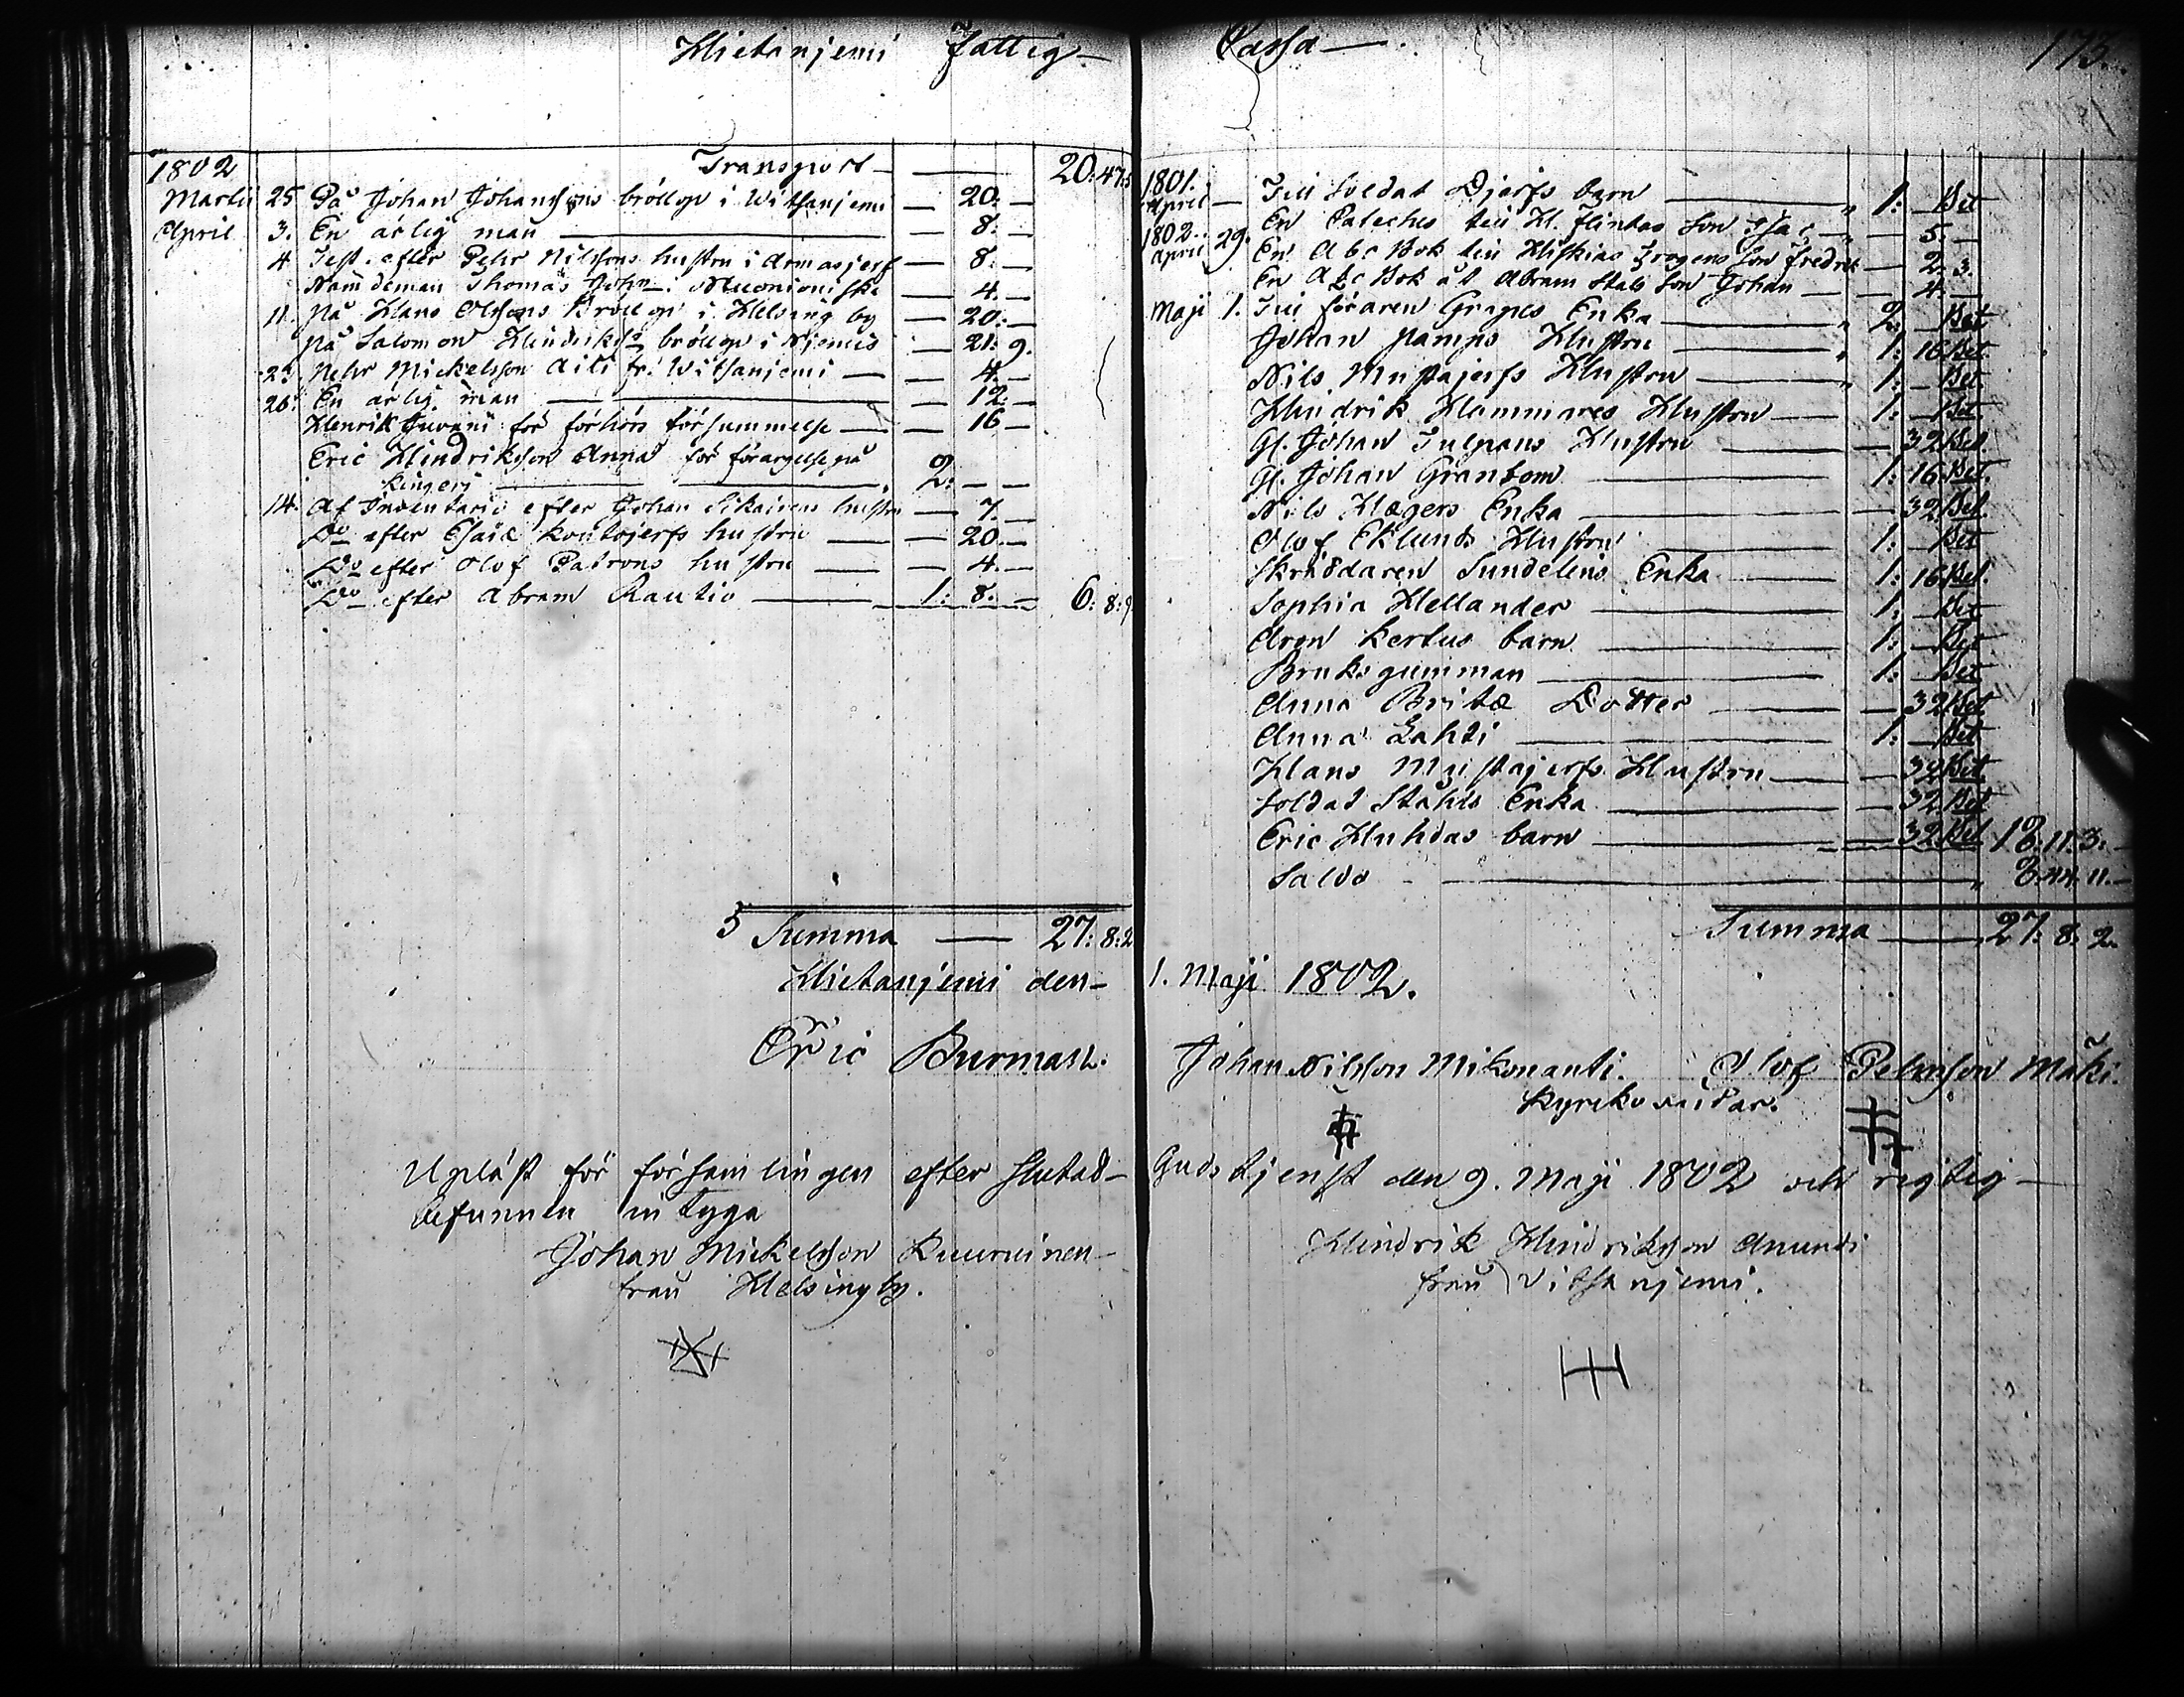 Hietaniemi Fattig-
1802 Transport — 20:47:5
Martii 25 På Johan Johanssons bröllop i Witsanjemi — 20: —
April 3. En ärlig man — 8. —
4 Test. efter Pehr Nilssons hustru i Armasjerf — 8. —
Nämdeman Thomas Joh:n i Muonioniska — 4. —
11. På Hans Olssons Bröllop i Helsing by — 20: —
På Salomon Hindrikss: bröllop i Njemis — 21: 9.
Pehr Mickelsson Aili fr. Witsanjemi — 4. —
26. En ärlig man — 12: —
Henrik Juvani för förhörs försummelse — 16 —
Eric Hindriksson Anna för förargelse på
Kingeri — 2: — —
14. Af Inventario efter Johan Sikainens hustru — 7. —
D:o efter Esaiæ Kontojerfs hustru — 20. —
D:o efter Olof Patrons hustru — 4. —
D:o efter Abram Rautio — 1: 8. — 6: 8: 9
Summa — 27: 8: 2
Hietaniemi den-
Eric Burman.
Upläst för församlingen efter slutad-
befunnen intyga
Johan Mickelsson Kuurninen
från Helsingby.
Cassa — 173.
1801.
April — Till Soldat Djerfs barn — 1: — Bet
En Cateches till H. Flintas Son Isac — 5. —
1802.
April 29. En Abc Bok till Hiskias Son Fredrik — 2. 3.
En Abc Bok åt Abram Stals Son Johan — 4. —
Maji 1. Till föraren Grapes Enka — 2. — Bet
Johan Pamps Hustru — 1: 16 Bet.
Nils Mustajerfs Hustru — 1: — Bet.
Hindrik Hammares Hustru — 1: — Bet.
Gl. Johan Tulpans Hustru — 32 Bet.
Gl. Johan Granbom — 1: 16 Bet.
Nils Hægers Enka — 32 Bet.
Olof Eklunds Hustru — 1: — Bet
Skräddaren Sundelins Enka — 1: 16 Bet.
Sophia Hellander — 1: — Bet
Aron Kertus barn — 1: — Bet
Bruksgumman — 1: — Bet
Anna Britæ Dotter — 32 Bet
Anna Lahti — 1: — Bet
Hans Mustajerfs Hustru — 32 Bet
Soldat Ståhls Enka — 32 Bet
Eric Huhdas barn — 32 Bet 18: 11. 3. —
Saldo — 8. 44. 11. —
Summa — 27: 8. 2.
1. Maji 1802.
Johan Nilsson Mikonanti. Olof Pehrsson Mäki.
Kyrkovärdar.
Gudstjenst den 9. Maji 1802 och rigtig —
Hindrik Hindriksson Anundi
från Vitsanjemi.